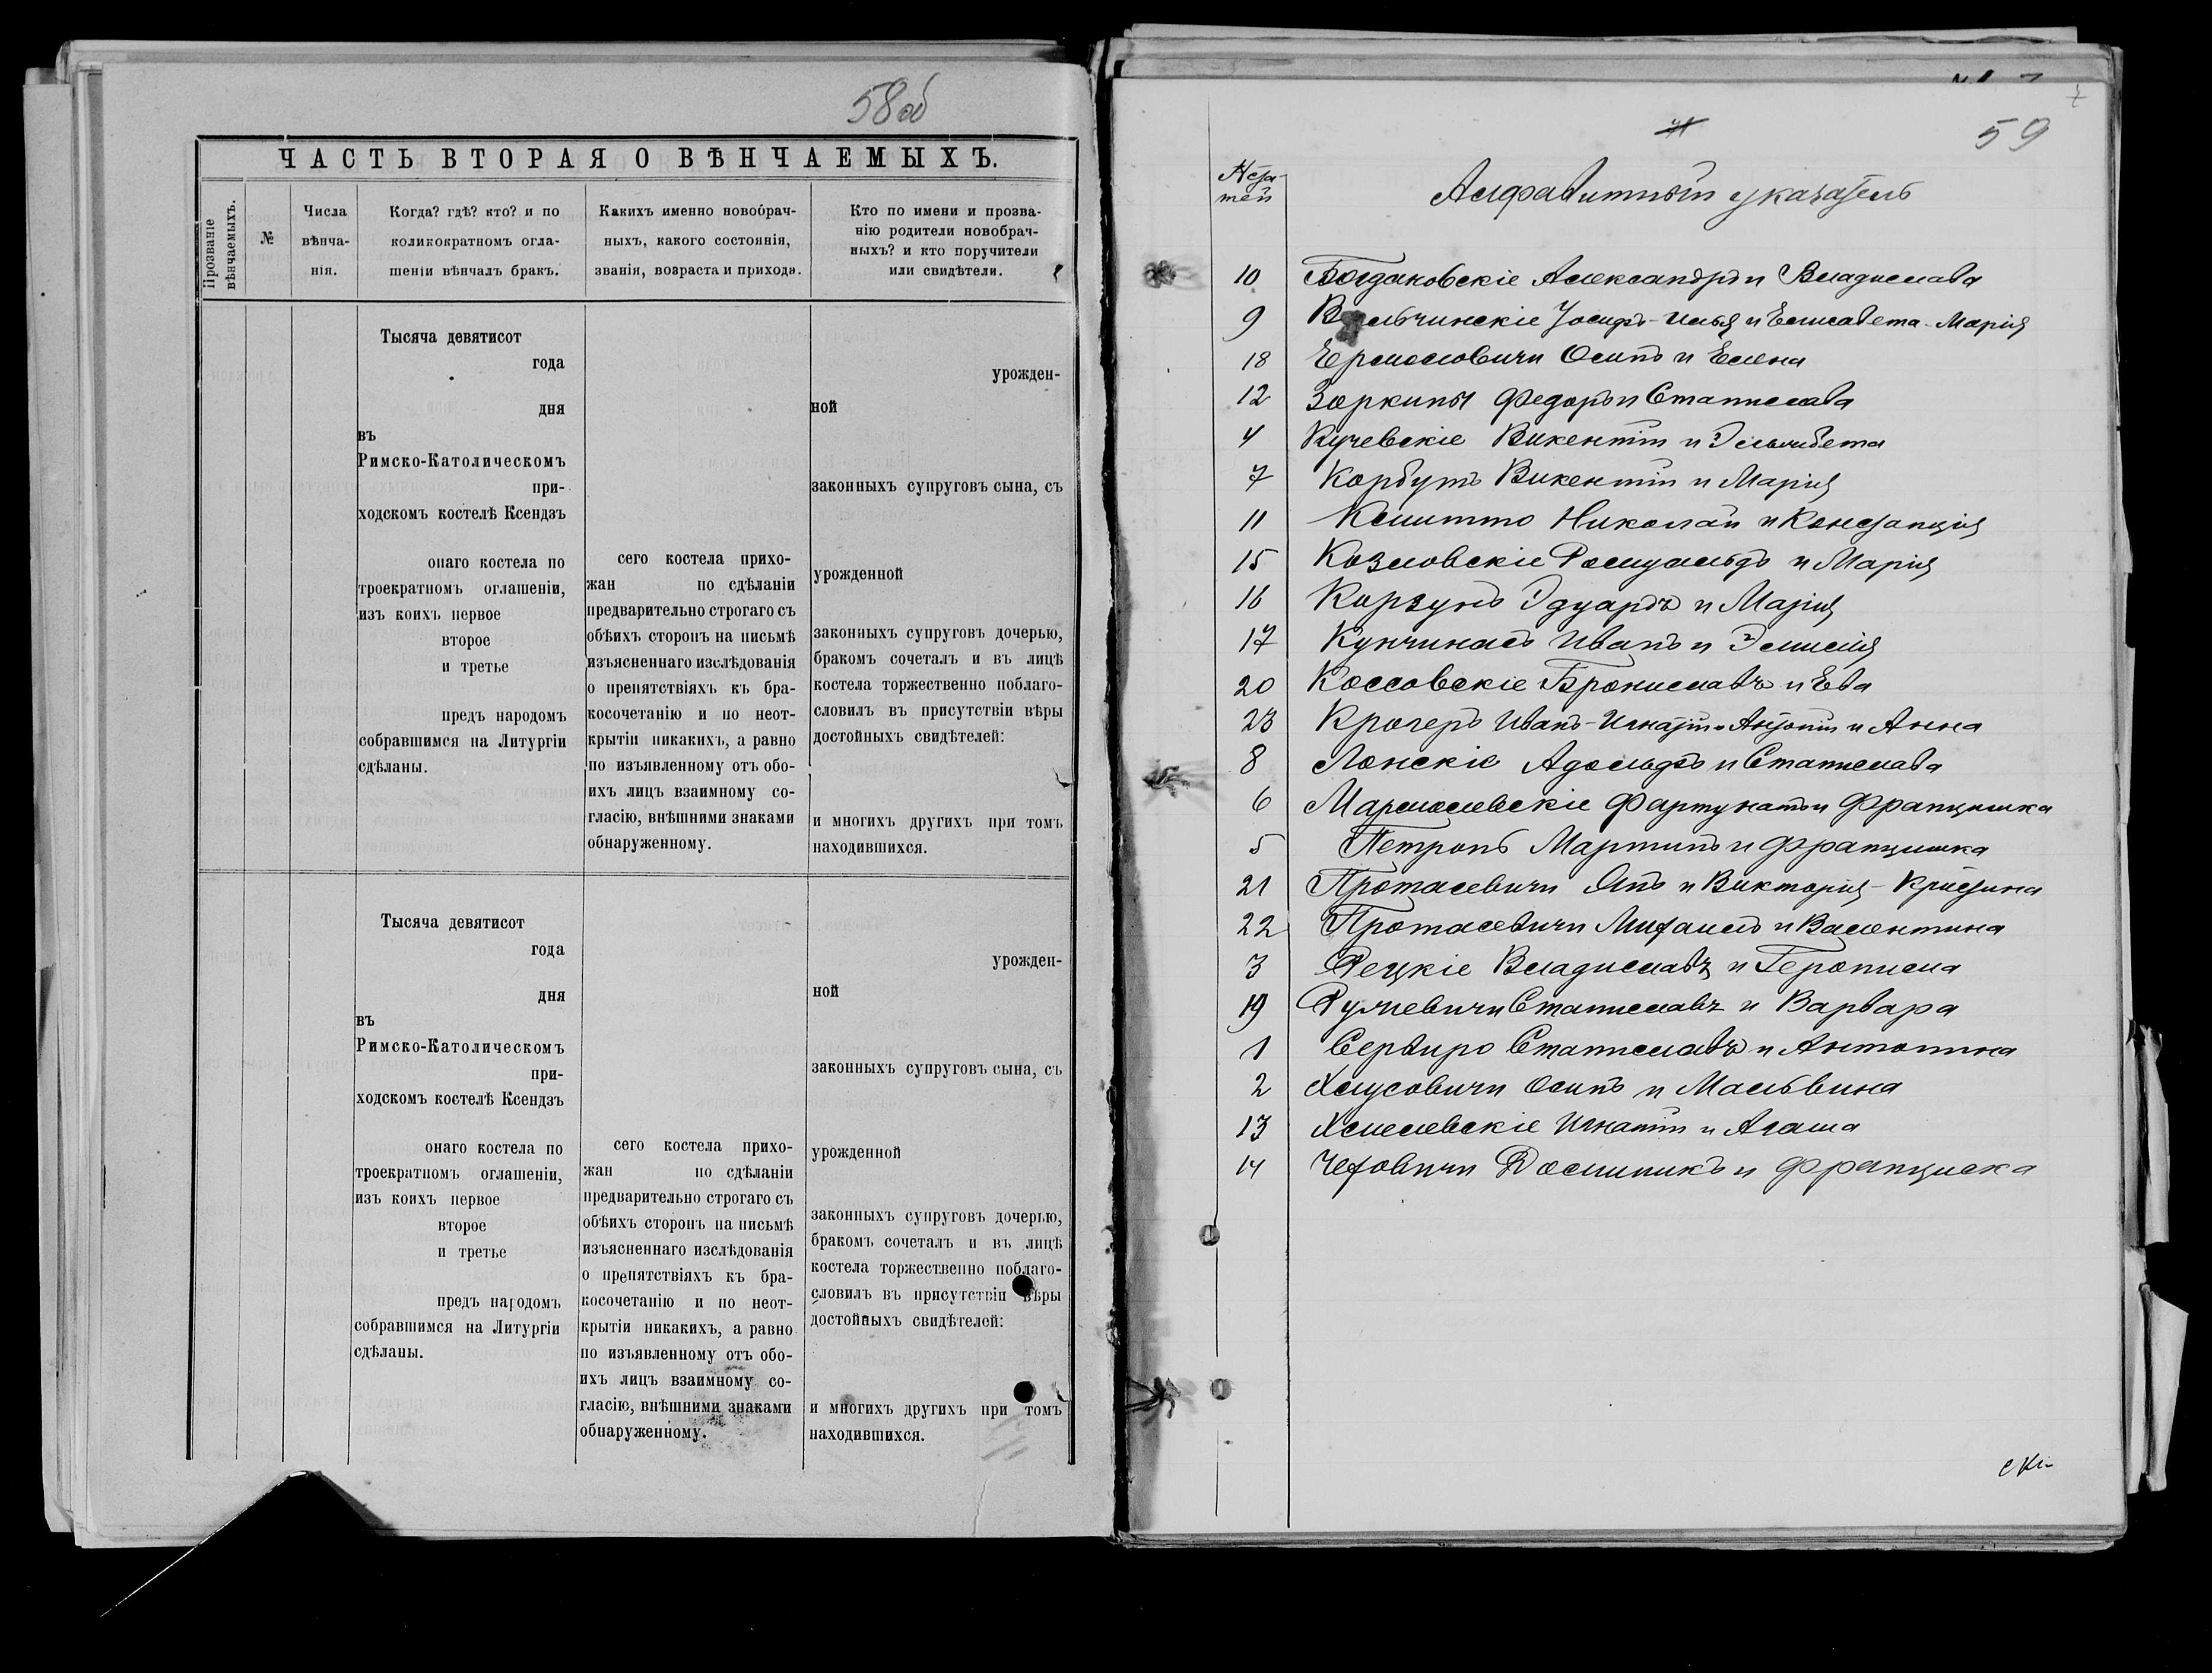 58 об
ЧАСТЬ ВТОРАЯ О ВѢНЧАЕМЫХЪ.
Прозваніе
вѣнчаемыхъ.
№
Числа
вѣнча-
нія.
Когда? гдѣ? кто? и по
коликократномъ огла-
шеніи вѣнчалъ бракъ.
Какихъ именно новобрач-
ныхъ, какого состоянія,
званія, возраста и прихода.
Кто по имени и прозва-
нію родители новобрач-
ныхъ? и кто поручители
или свидѣтели.
Тысяча девятисот
года
дня
въ
Римско-Католическомъ
при-
ходскомъ костелѣ Ксендзъ
онаго костела по
троекратномъ оглашеніи,
изъ коихъ первое
второе
и третье
предъ народомъ
собравшимся на Литургіи
сдѣланы.
сего костела прихо-
жан по сдѣланіи
предварительно строгаго съ
обѣихъ сторонъ на письмѣ
изъясненнаго изслѣдованія
о препятствіяхъ къ бра-
косочетанію и по неот-
крытіи никакихъ, а равно
по изъявленному отъ обо-
ихъ лицъ взаимному со-
гласію, внѣшними знаками
обнаруженному.
урожден-
ной
законныхъ супруговъ сына, съ
урожденной
законныхъ супруговъ дочерью,
бракомъ сочеталъ и въ лицѣ
костела торжественно поблаго-
словилъ въ присутствіи вѣры
достойныхъ свидѣтелей:
и многихъ другихъ при томъ
находившихся.
Тысяча девятисот
года
дня
въ
Римско-Католическомъ
при-
ходскомъ костелѣ Ксендзъ
онаго костела по
троекратномъ оглашеніи,
изъ коихъ первое
второе
и третье
предъ народомъ
собравшимся на Литургіи
сдѣланы.
сего костела прихо-
жан по сдѣланіи
предварительно строгаго съ
обѣихъ сторонъ на письмѣ
изъясненнаго изслѣдованія
о препятствіяхъ къ бра-
косочетанію и по неот-
крытіи никакихъ, а равно
по изъявленному отъ обо-
ихъ лицъ взаимному со-
гласію, внѣшними знаками
обнаруженному.
урожден-
ной
законныхъ супруговъ сына, съ
урожденной
законныхъ супруговъ дочерью,
бракомъ сочеталъ и въ лицѣ
костела торжественно поблаго-
словилъ въ присутствіи вѣры
достойныхъ свидѣтелей:
и многихъ другихъ при томъ
находившихся.
59
Алфавитный указатель
10 Богдановскіе Александръ и Владислава
9 Іосифъ-Илья и Елисавета-Марія
18 Ермоловичи Осипъ и Елена
12 Зоркины Федоръ и Станислава
4 Кучевскіе Викентій и Эльжбета
7 Корбутъ Викентій и Марія
11 Климто Николай и Констанція
15 Козловскіе Ромуальдъ и Марія
16 Корзунъ Эдуардъ и Марія
17 Кунчинасъ Иванъ и Эмилія
20 Коссовскіе Брониславъ и Ева
23 Крочеръ Иванъ-Игнатій-Антоній и Анна
8 Лонскіе Адольфъ и Станислава
6 Фортунатъ и Францишка
5 Петронь Мартинъ и Францишка
21 Протасевичи Янъ и Викторія-Кристина
22 Протасевичи Михаилъ и Валентина
3 Рецкіе Владиславъ и Геронима
19 Станиславъ и Варвара
1 Сервиро Станиславъ и Антонина
2 Хлусовичи Осипъ и Мальвина
13 Хмелевскіе Игнатій и Агата
14 Чеховичи Доминикъ и Франциска